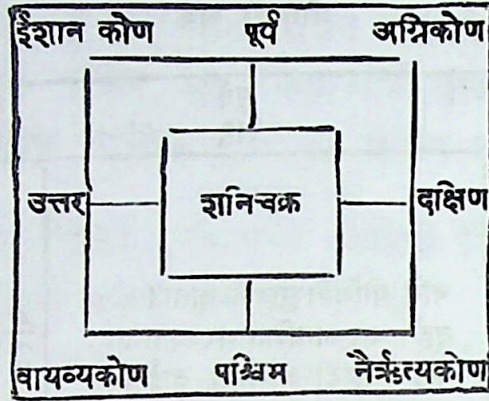 ईशान कोण पूर्व अग्निकोण
उत्तर शनिचक्र दक्षिण
वायव्यकोण पश्चिम नैर्ऋत्यकोण